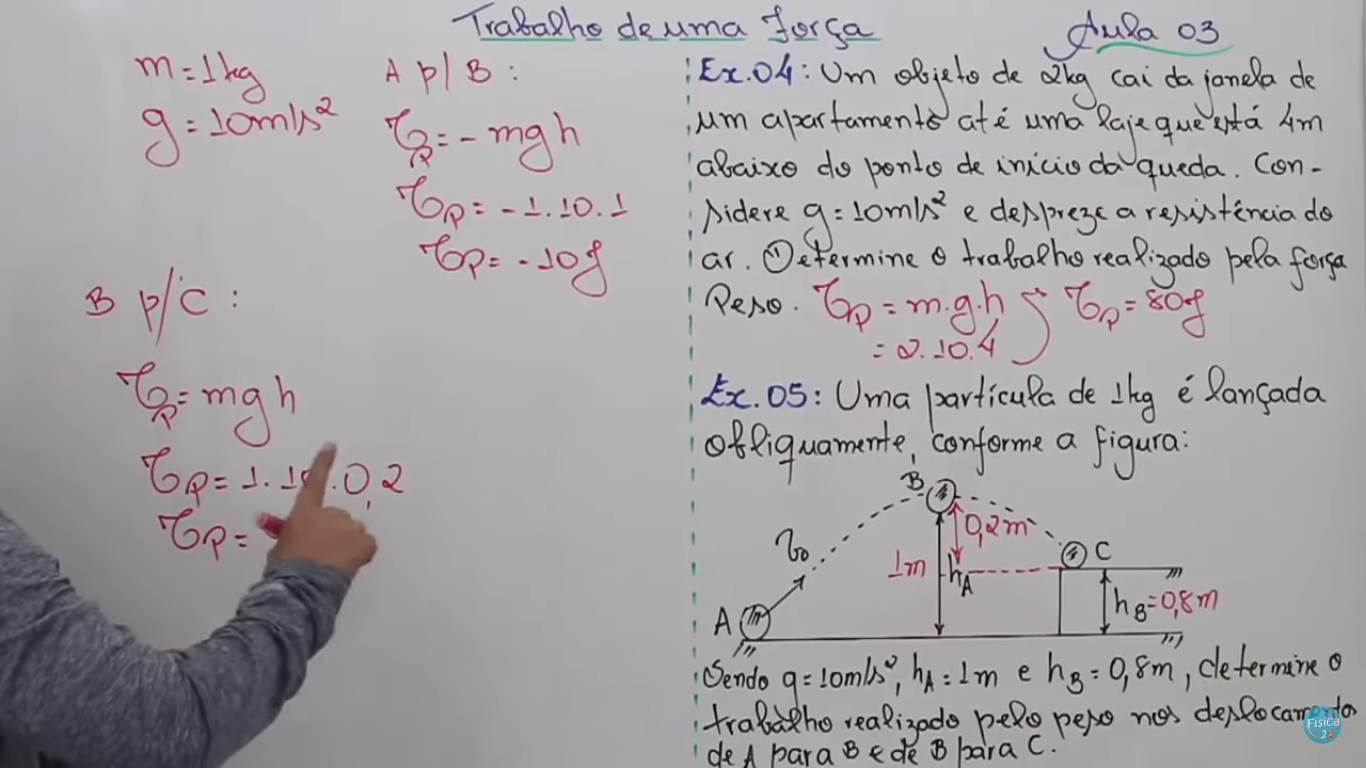 Trabalho de uma Força
Aula 03
m = 1kg
g = 10m/s²
A p/ B :
𝒯P = - mgh
𝒯P = - 1.10.1
𝒯P = - 10J
B p/ C :
𝒯P = mgh
𝒯P = 1.10.0,2
𝒯P =
Ex.04: Um objeto de 2kg cai da janela de
um apartamento até uma laje que está 4m
abaixo do ponto de início da queda. Con-
sidere g = 10m/s² e despreze a resistência do
ar. ① Determine o trabalho realizado pela força
Peso. 𝒯P = m.g.h 𝒯P = 80J
= 2.10.4
Ex.05: Uma partícula de 1kg é lançada
obliquamente, conforme a figura:
B
0,2m
v0
1m
hA
C
hB = 0,8m
A
Sendo g = 10m/s², hA = 1m e hB = 0,8m, determine o
trabalho realizado pelo peso nos deslocamentos
de A para B e de B para C.
Física
2.0